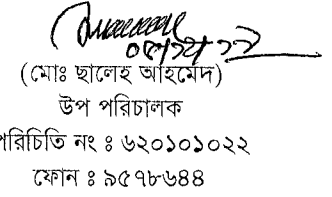 (মোঃ ছালেহ আহমেদ)
উপ পরিচালক
পরিচিতি নং ঃ ৬২০১০১০২২
ফোন ঃ ৯৫৭৮৬৪৪